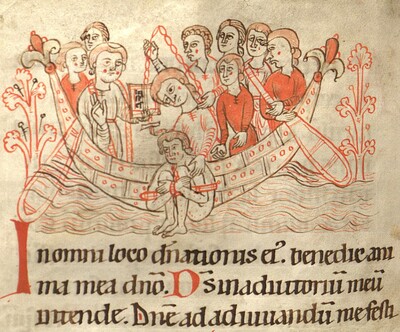 In omni loco dñationis ei᾽. benedic ani
ma mea dño. Ds̄ in adiutoriū meū
intende. Dñe ad adiuuandū me festi